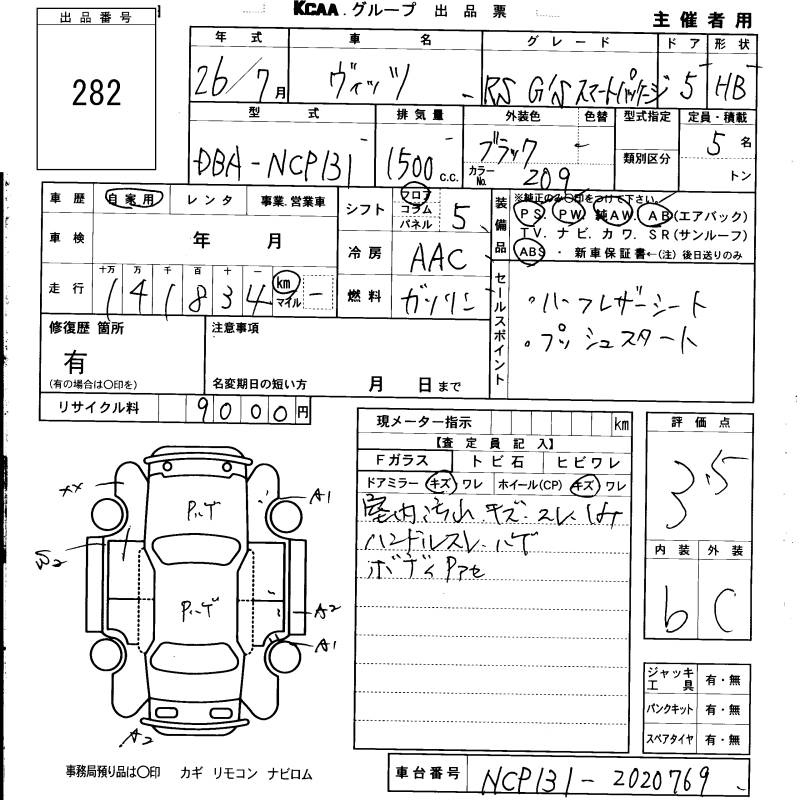 KCAA.グループ 出品票
主催者用
出品番号
282
年式 車名 グレード ドア 形状
26/7月 ヴィッツ RS G'S スマートパッケージ 5 HB
型式 排気量 外装色 色替 型式指定 定員・積載
DBA-NCP131 1500 c.c. ブラック 5名
カラーNo. 209 類別区分 トン
車歴 自家用 レンタ 事業.営業車
シフト フロア コラム パネル 5
車検 年 月
冷房 AAC
走行 十万 万 千 百 十 一
141834 km マイル
燃料 ガソリン
装備品 ※純正のみ○印をつけて下さい。
PS. PW. 純AW. AB(エアバック)
TV.ナビ.カワ.SR(サンルーフ)
ABS ・新車保証書←(注)後日送りのみ
セールスポイント
・ハーフレザーシート
・プッシュスタート
修復歴 箇所
有
(有の場合は○印を)
注意事項
名変期日の短い方 月 日まで
リサイクル料 9000円
現メーター指示 km
【査定員記入】
Fガラス トビ石 ヒビワレ
ドアミラー キズ ワレ ホイール(CP) キズ ワレ
室内汚れ.キズ.スレ
ハンドルスレ.ハゲ
ボディPアセ
評価点
3.5
内装 外装
b C
XX A1
Pハゲ
W2
Pハゲ
A2
A1
A2
ジャッキ工具 有・無
パンクキット 有・無
スペアタイヤ 有・無
事務局預り品は○印 カギ リモコン ナビロム
車台番号 NCP131-2020769